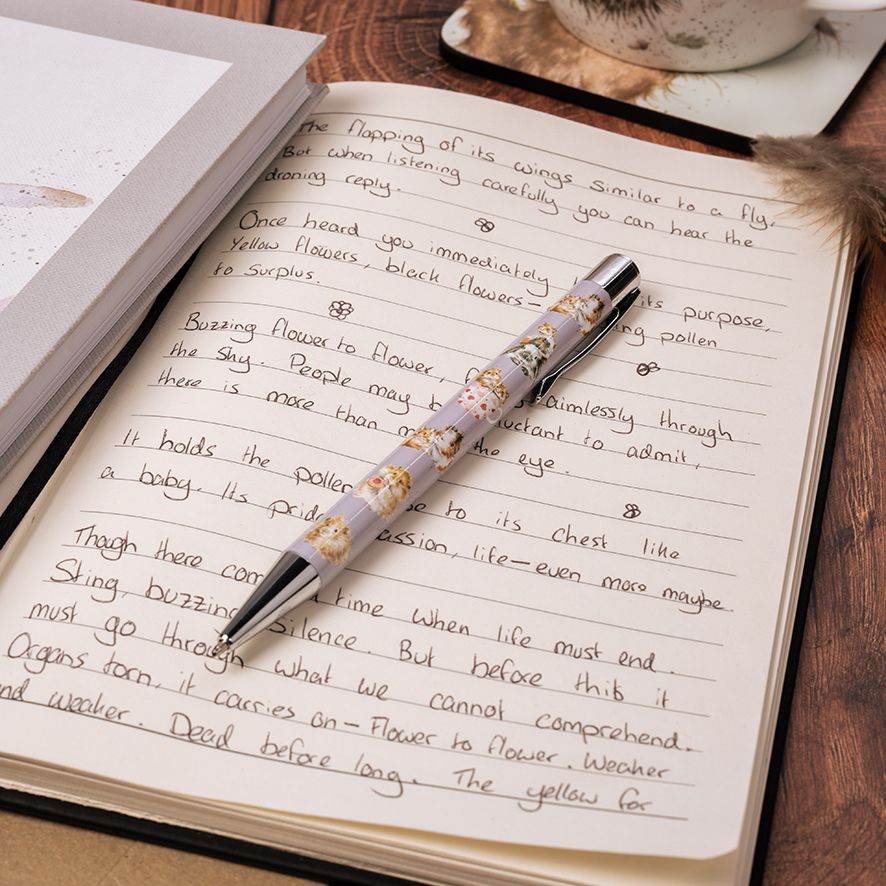 The flapping of its wings similar to a fly.
But when listening carefully you can hear the
droning reply.
Once heard you immediately its purpose,
Yellow flowers, black flowers- ing pollen
to surplus.
Buzzing flower to flower, aimlessly through
the sky. People may b uctant to admit,
there is more than m the eye.
It holds the pollen to its chest like
a baby. Its prid assion, life-even more maybe.
Though there com a time when life must end.
Sting, buzzing Silence. But before this it
must go through what we cannot comprehend.
Organs torn, it carries on- Flower to flower. Weaker
nd weaker. Dead before long. The yellow for